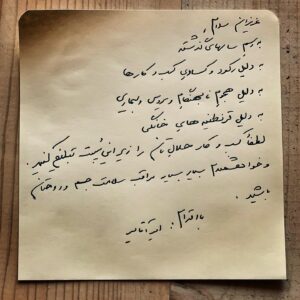 عزیزان سلام،
به رسم سالهای گذشته
به دلیل رکود و کسادی کسب و کارها
به دلیل هجوم نابهنگام ویروس و بیماری
به دلیل قرنطینه های خانگی
لطفاً کسب و کار حلال تان را زیر این پست تبلیغ کنید.
و خواهشمندم بسیار بسیار مراقب سلامت جسم و روحتان
باشید.
با احترام: